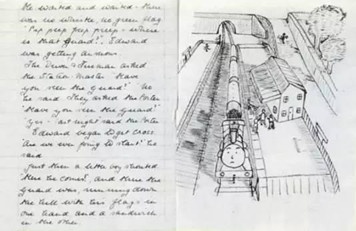 He waited and waited - there
was no whistle, no green flag.
'Peep peep peep peep - where
is that Guard?' Edward
was getting anxious.
The Driver & Fireman asked
the Station Master 'Have
you seen the guard?' 'No'
he said. They asked the Porter
'Have you seen the guard?'
'Yes - last night' said the Porter
Edward began to get cross
'Are we ever going to start?' he
said
Just then a little boy shouted
'Here he comes!' and there the
Guard was, running down
the hill with his flags in
one hand and a sandwich
in the other.